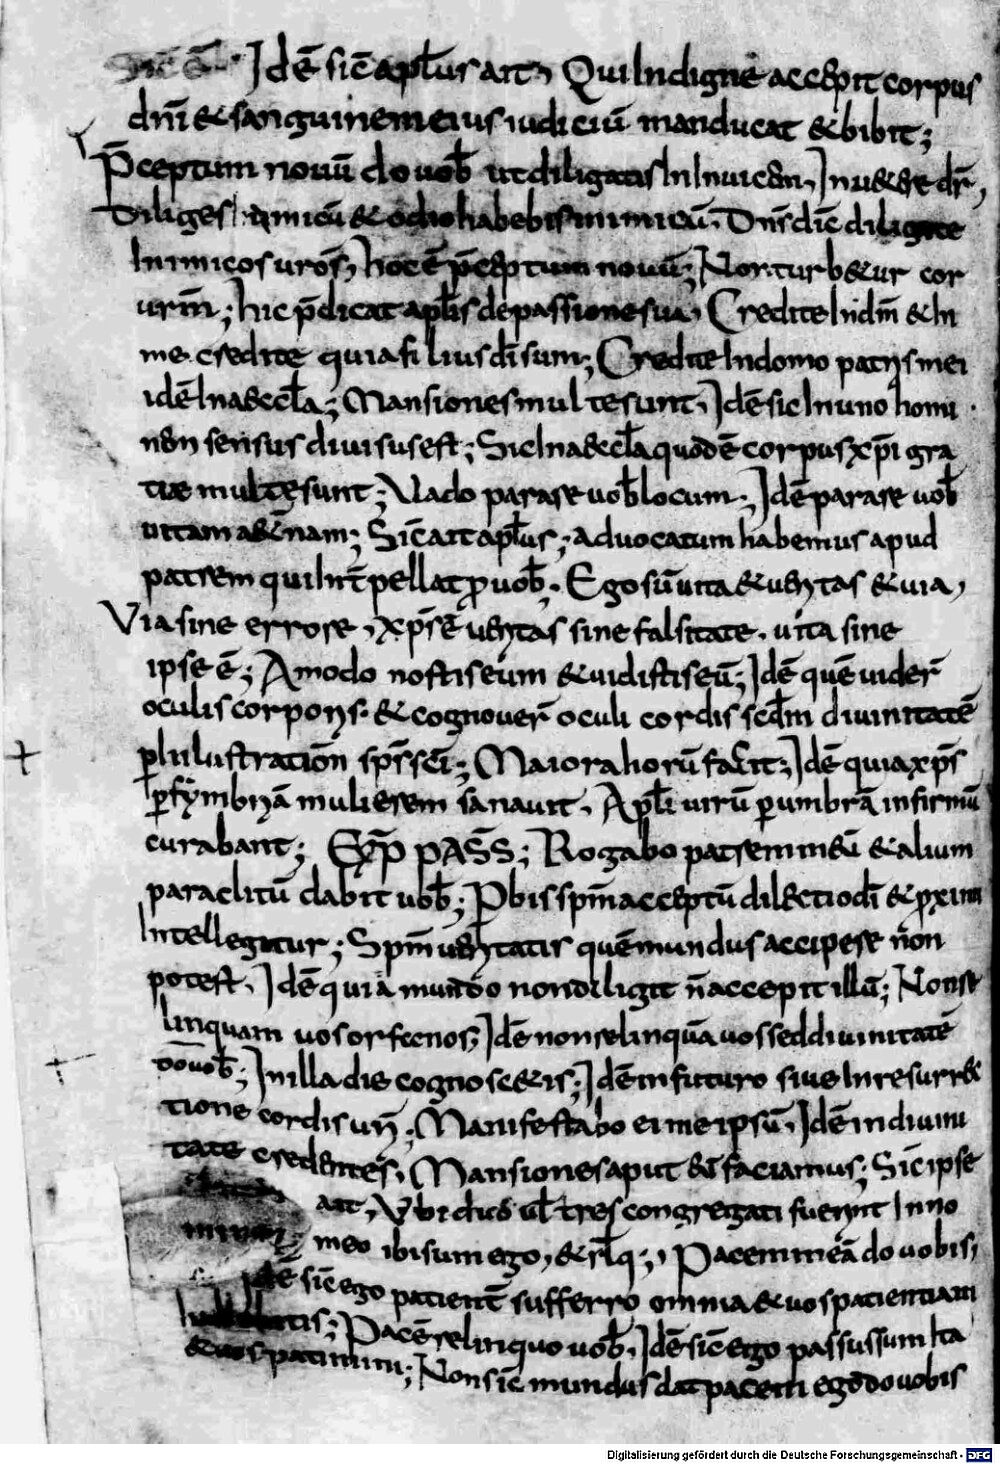 Sic ē. Idē sic̄ apl̄us ait, Qui Indigne accepit corpus
dnī & sanguinem eius iudiciū manducat & bibit;
P̄ceptum nouū do uob̄ ut diligatis In Inuicem, In uetere dr̄,
Diliges amicū & odio habebis inimicū, Dn̄s dic̄ diligite
Inimicos ur̄os, hoc ē p̄ceptum nouū; Non turb&ur cor
ur̄m; hic p̄dicat apl̄is de passione sua, Credite In dm̄ & In
me credite quia filius dī sum; Credite In domo patris mei
idē In aeccl̄a; Mansiones multe sunt, Idē sic In uno homi
nem sensus diuisus est; Sic In aeccl̄a quod ē corpus xp̄i gra
tiae multe sunt; Uado parare uob̄ locum; Idē parare uob̄
uitam aet̄nam; Sic̄ ait apl̄us; aduocatum habemus apud
patrem qui Int̄pellat pro uob̄; Ego sū uita & ueritas & uia,
Via sine errore, xp̄s ē ueritas sine falsitate, uita sine
ipse ē; Amodo nostis eum & uidistis eū; Idē quē uider̄
oculis corporis & cognouer̄ oculi cordis scdm̄ diuinitatē
per Inlustrationē sp̄s scī; Maiora horū faciet; Idē quia xp̄s
per fymbriā mulierem sanauit, Apl̄i uirū per umbrā infirmū
curabant; EXP̄ PASS̄; Rogabo patrem meū & alium
paraclitū dabit uob̄; P bis sp̄m acceptū dilectio dī & proximi
Intellegitur; Sp̄m ueritatis quē mundus accipere non
potest, Idē quia mundo non diligit n̄ accepit illū; Non re
linquam uos orfenos; Idē non relinquā uos sed diuinitatē
do uob̄; In illa die cognoscetis; Idē in futuro siue In resurrec
tione cordis ur̄i; Manifestabo ei me ipsū, Idē in diuini
tate credentes, Mansiones aput eū faciamus; Sic̄ ipse
ait, Vbi duo ul̄ tres congregati fuerint In no
mine meo ibi sum ego, & rl̄q;, Pacem meā do uobis,
Idē sic̄ ego patient̄ sufferro omnia & uos patientiam
habeatis; Pacē relinquo uob̄, Idē sic̄ ego passus sum Ita
& uos patimini; Non sic̄ mundus dat pacem ego do uobis
Digitalisierung gefördert durch die Deutsche Forschungsgemeinschaft - DFG